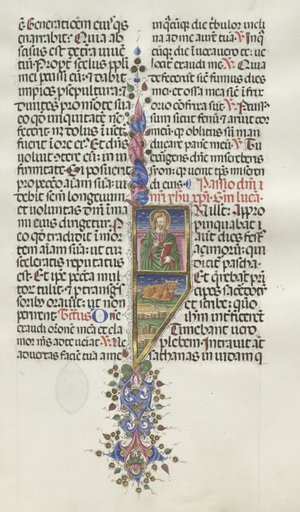 est Generationem eius quis
enarrabit: Quia ab
scisus est de terra uiuen
tium: Propter scelus ppli
mei percussi eum: et dabit
impios pro sepultura: et
diuites pro morte sua:
eo quod iniquitatem non
fecerit nec dolus inuen
tus fuerit in ore eius. Et dns
uoluit conterere eum in in
firmitate: Si posuerit
pro peccato animam suam: ui
debit semen longeuum
et uoluntas dni in ma
nu eius dirigetur. Pro
eo quod tradidit in mor
tem animam suam: et cum
sceleratis reputatus
est. Et ipse peccata mul
torum tulit: et pro transgres
soribus orauit: ut non
perirent. Tractus. Domine
exaudi orationem meam et cla
mor meus ad te ueniat. V. Ne
auertas faciem tuam a me
in quacumque die tribulor incli
na ad me aurem tuam. V. In qua
cumque die inuocauero te: ue
lociter exaudi me. V. Quia
defecerunt sicut fumus dies
mei: et ossa mea sicut in frix
orio confrixa sunt. V. Percus
sum sicut fenum: et aruit cor
meum: quia oblitus sum man
ducare panem meum. V. Tu
exurgens dne misereberis
syon: quia uenit tempus miserendi
eius. Passio dni
nri yhu xpi. Sin lucam.
In illo tempore: Appro
pinquabat
autem dies festus
açimorum: qui
dicitur pasca:
Et querebant prin
cipes sacerdotum
et scribe: quo
ihm interficerent
Timebant uero
plebem. Intrauit autem
sathanas in iudam qui